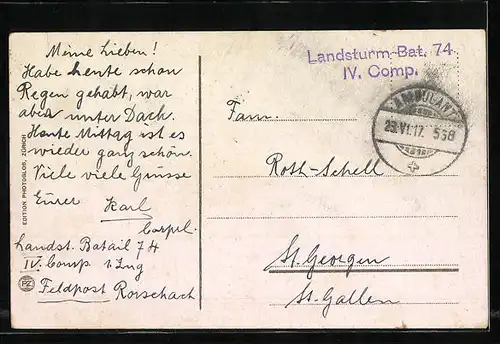 Meine Lieben!
Habe heute schon
Regen gehabt, war
aber unter Dach.
Heute Mittag ist es
wieder ganz schön.
Viele viele Grüsse
Eurer Karl
Corpl.
Landst. Batail 74
IV. Comp 1. Zug
Feldpost Rorschach
EDITION PHOTOGLOB, ZÜRICH
PZ
Landsturm-Bat. 74
IV. Comp.
AMBULANT
25.VI.17. 558
Fam.
Roth-Schell
St. Georgen
St. Gallen